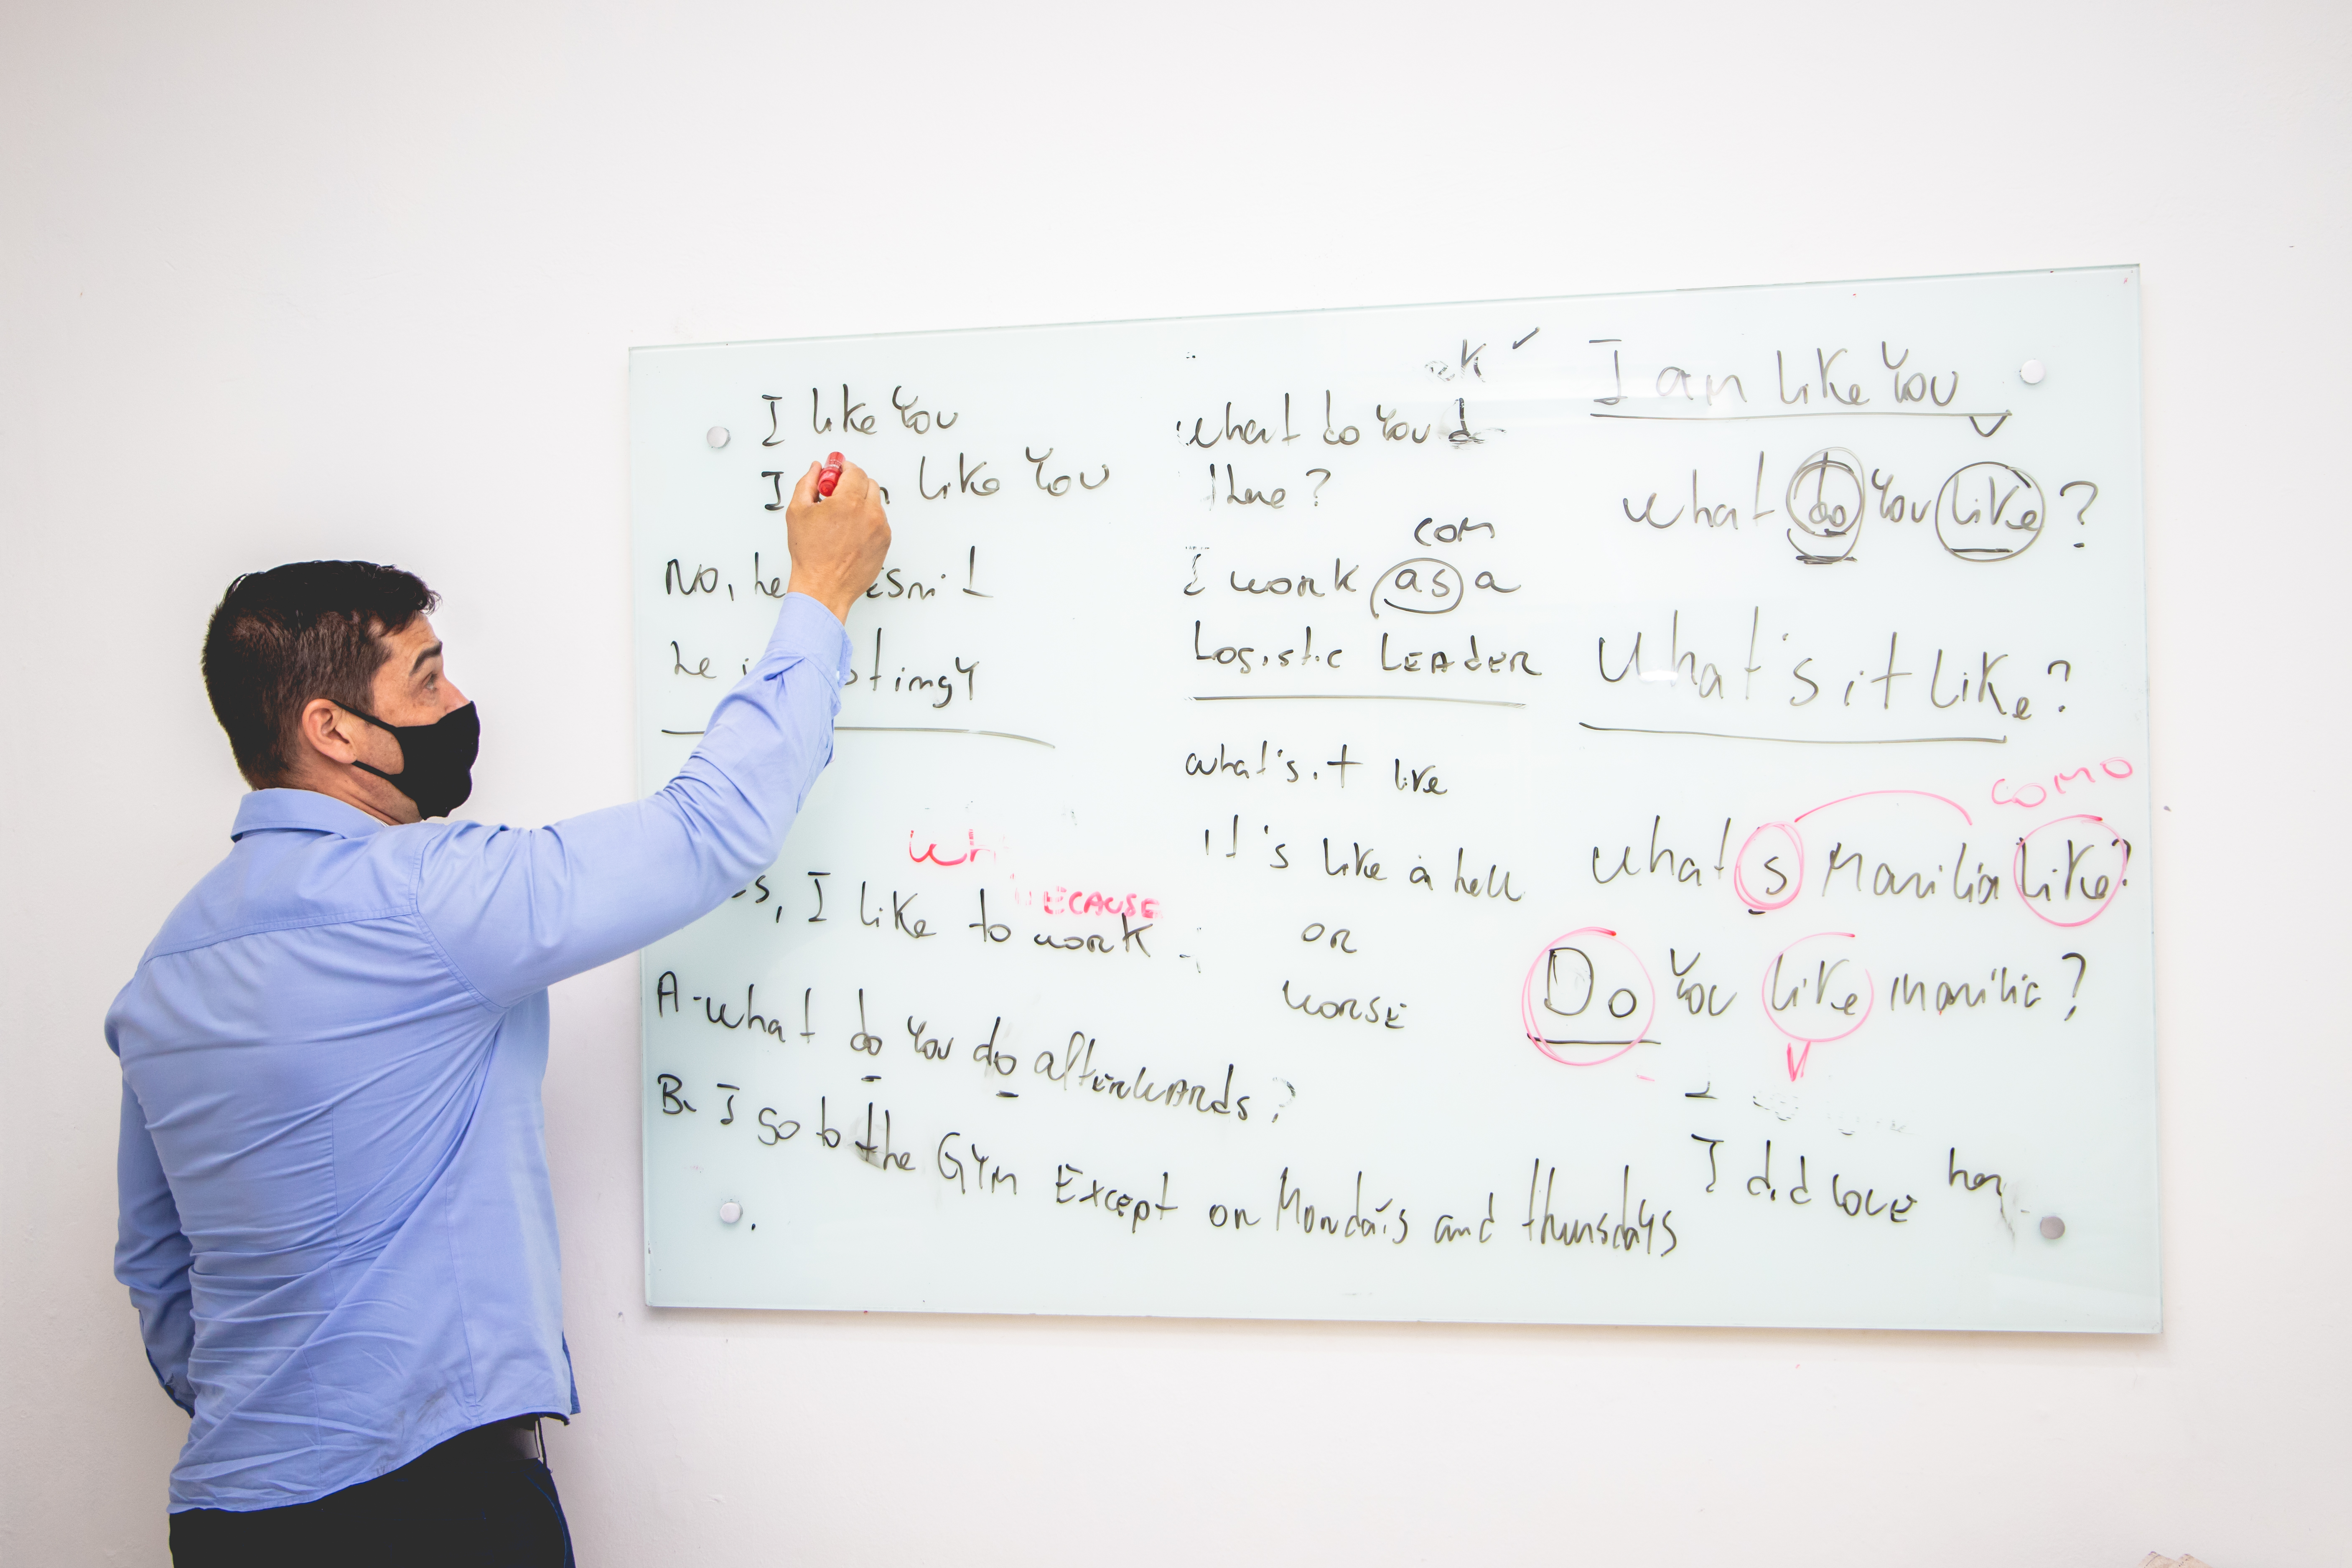 I like You
I like You
No, he
he stingy
I like to work
BECAUSE
A- what do you do afterwards?
B. I go to the Gym Except on Mondays and thursdays
what do you
there?
com
I work as a
Logistic LEADER
what's it like
it's like a hell
or
worse
I am like You
what do You like?
What's it like?
como
what s Marilia like?
Do You like marilia?
I did love her